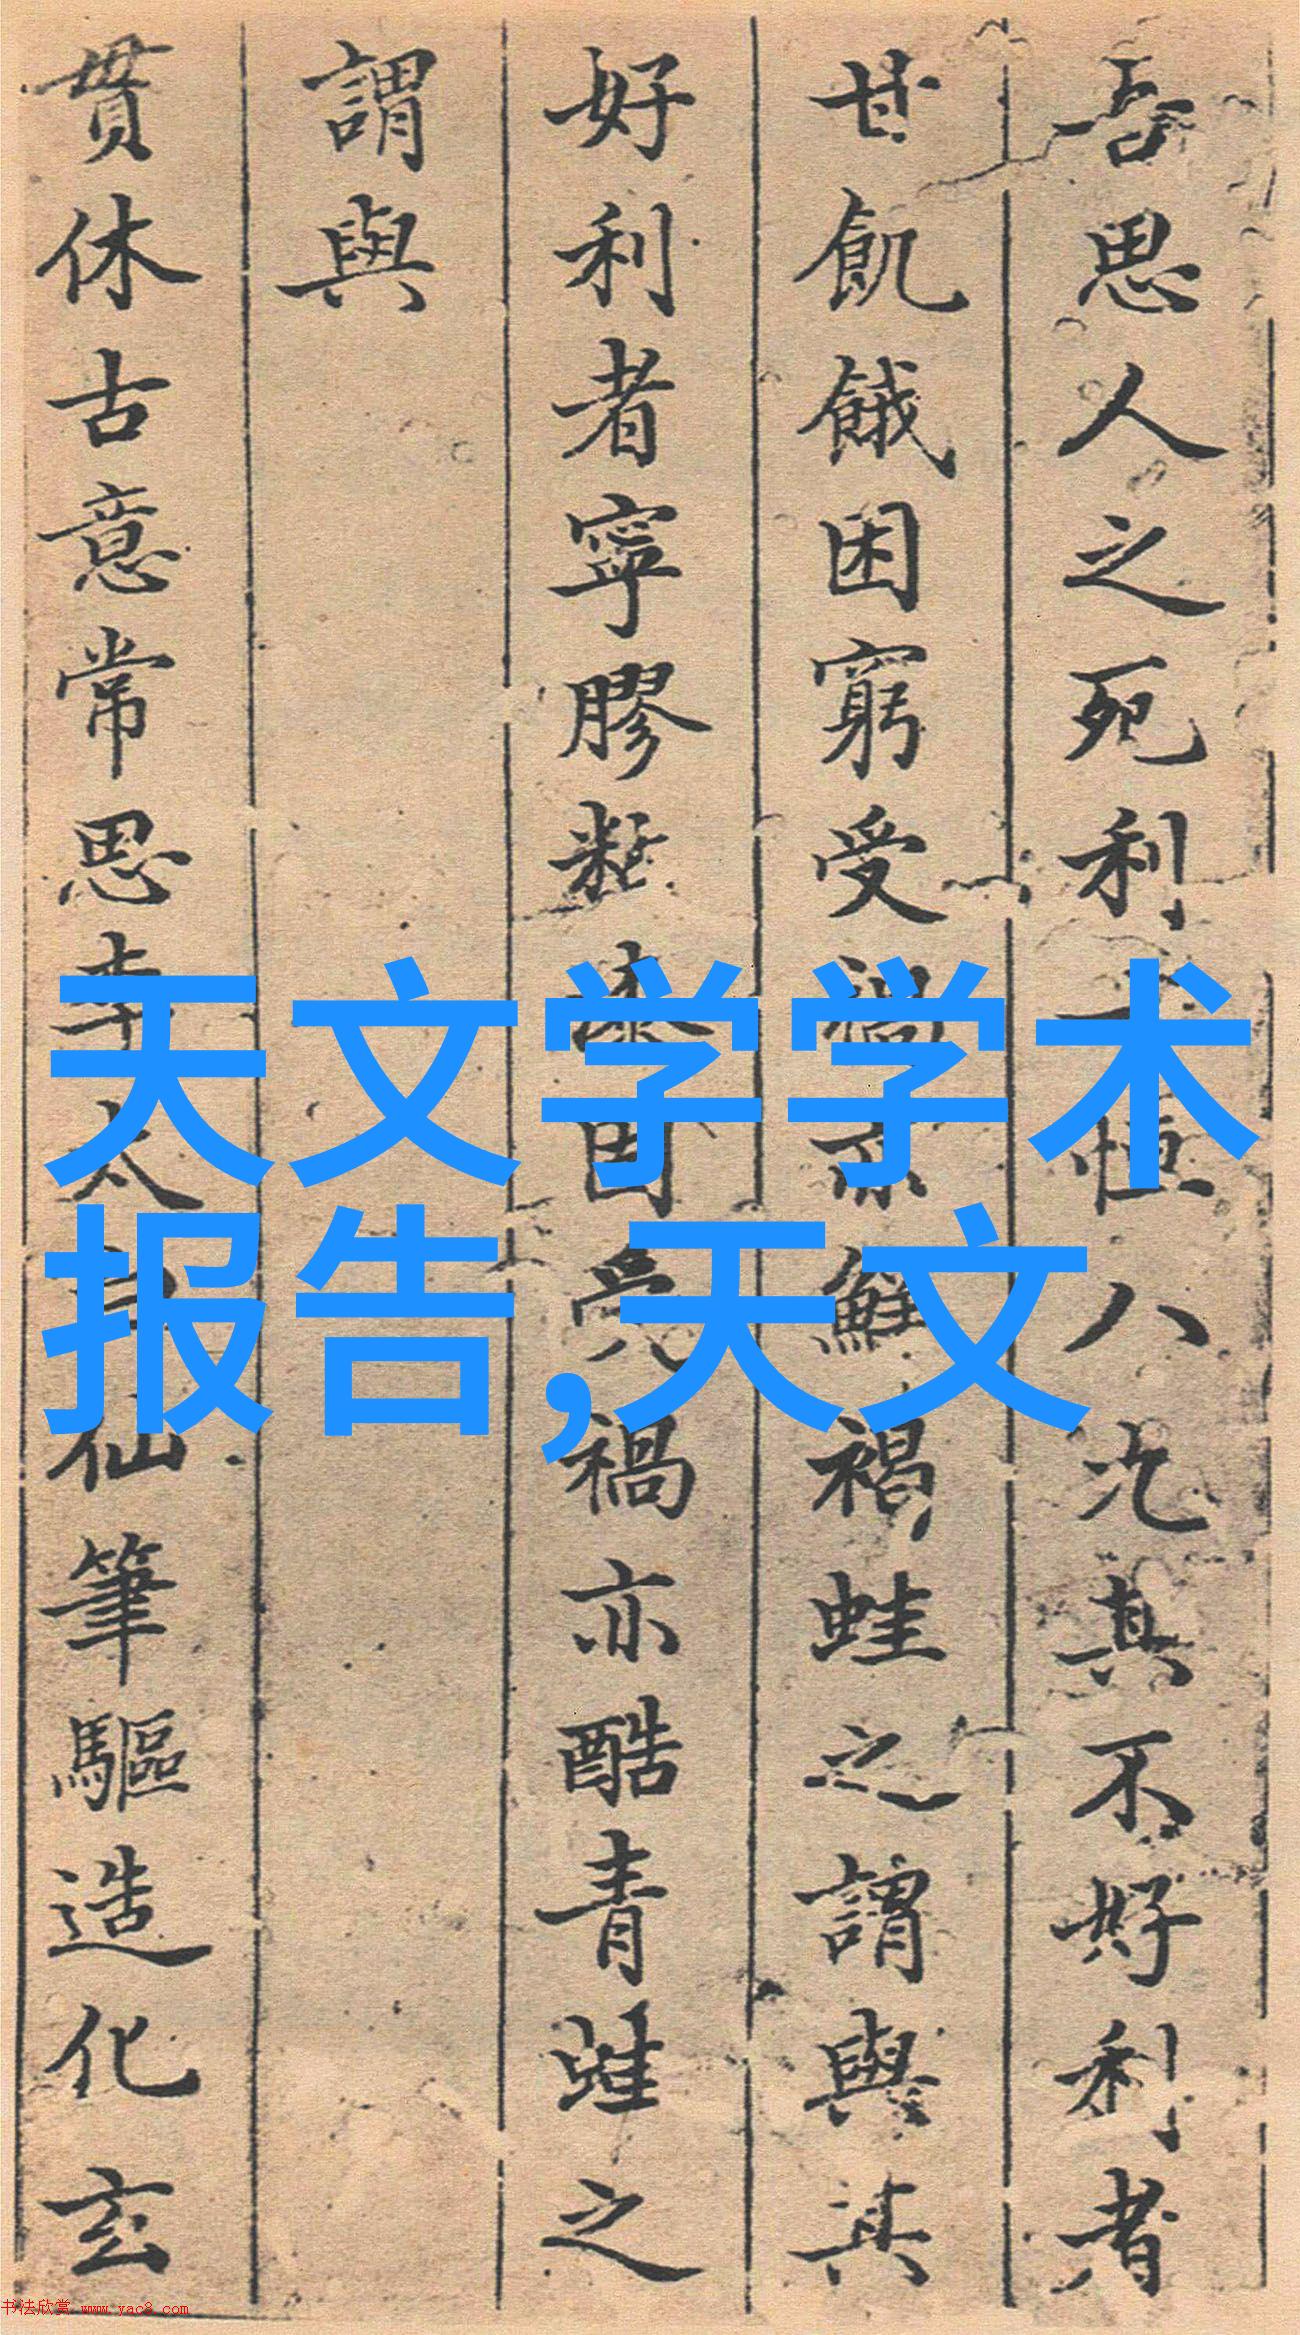 吾思人之死利恒八其不好利者
甘飢餓困窮受禍亦鮮褐蛙之謂與其
好利者寧膠漆固受禍亦酷青蛙之
謂與
貫休古意常思李太白仙筆驅造化玄
天文学学术
报告,天文
书法欣赏 www.yac8.com